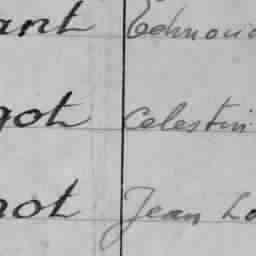 ant Edmou
got Celestin
not Jean Lo